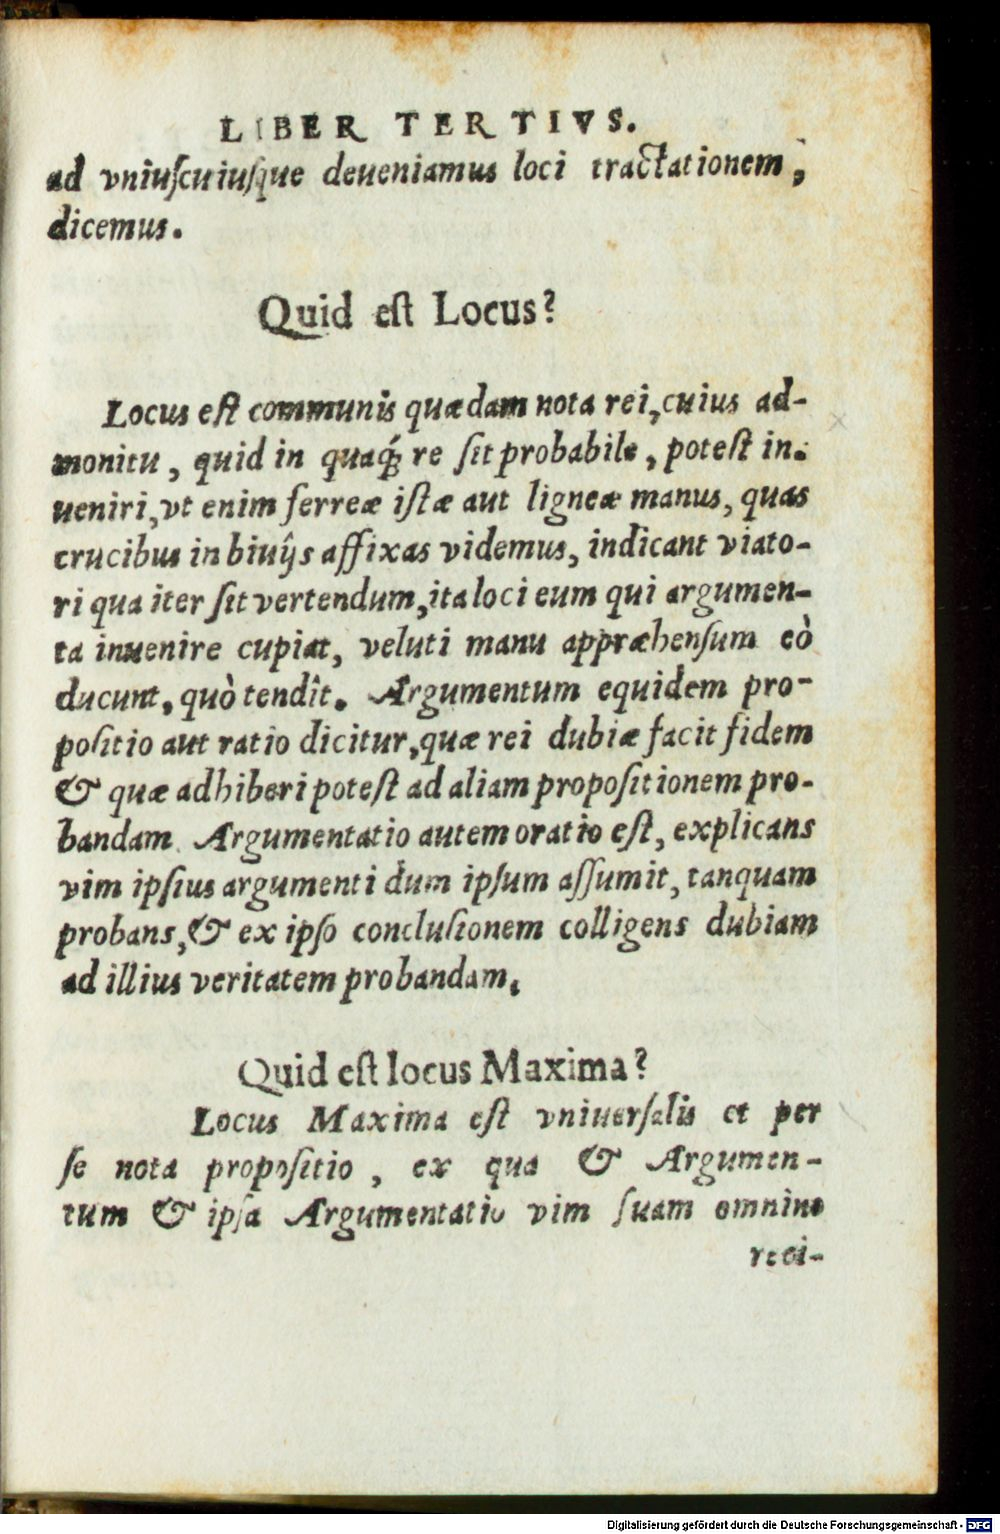 LIBER TERTIVS.
ad vniuſcuiuſque deueniamus loci tractationem,
dicemus.
Quid eſt Locus?
Locus eſt communis quædam nota rei, cuius ad-
monitu, quid in quaq́; re ſit probabile, poteſt in-
ueniri, vt enim ferreæ iſtæ aut ligneæ manus, quas
crucibus in biuijs affixas videmus, indicant viato-
ri qua iter ſit vertendum, ita loci eum qui argumen-
ta inuenire cupiat, veluti manu appræhenſum eò
ducunt, quò tendit. Argumentum equidem pro-
poſitio aut ratio dicitur, quæ rei dubiæ facit fidem
& quæ adhiberi poteſt ad aliam propoſitionem pro-
bandam. Argumentatio autem oratio eſt, explicans
vim ipſius argumenti dum ipſum aſſumit, tanquam
probans, & ex ipſo concluſionem colligens dubiam
ad illius veritatem probandam.
Quid eſt locus Maxima?
Locus Maxima eſt vniuerſalis et per
ſe nota propoſitio, ex qua & Argumen-
tum & ipſa Argumentatio vim ſuam omnino
reci-
Digitalisierung gefördert durch die Deutsche Forschungsgemeinschaft - DFG